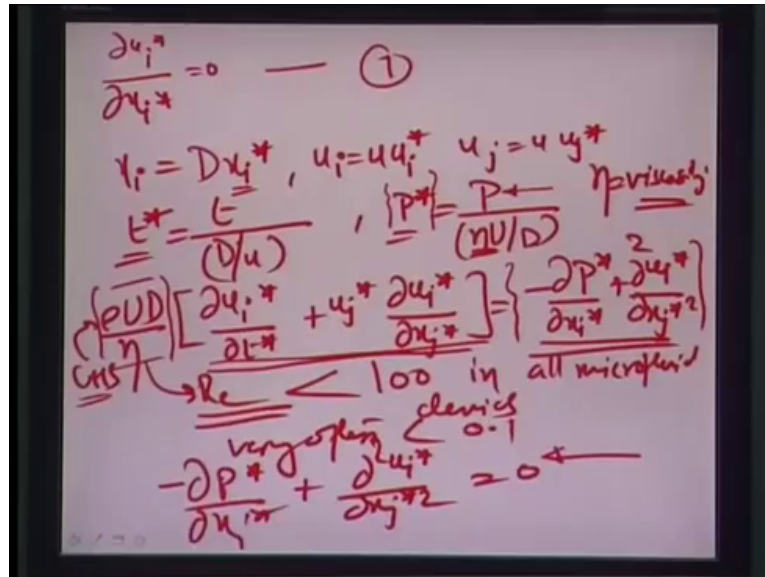 ∂u_i* / ∂x_i* = 0 — ①
x_i = D x_i*, u_i = u u_i* u_j = u u_j*
t* = t / (D/u), {P*} = P / (ηU/D) η = viscosity
(ρUD/η) [∂u_i*/∂t* + u_j* ∂u_i*/∂x_j*] = {-∂P*/∂x_i* + ∂²u_i*/∂x_j*²}
LHS Re < 100 in all microfluid
devices
very often < 0.1
-∂P*/∂x_i* + ∂²u_i*/∂x_j*² = 0